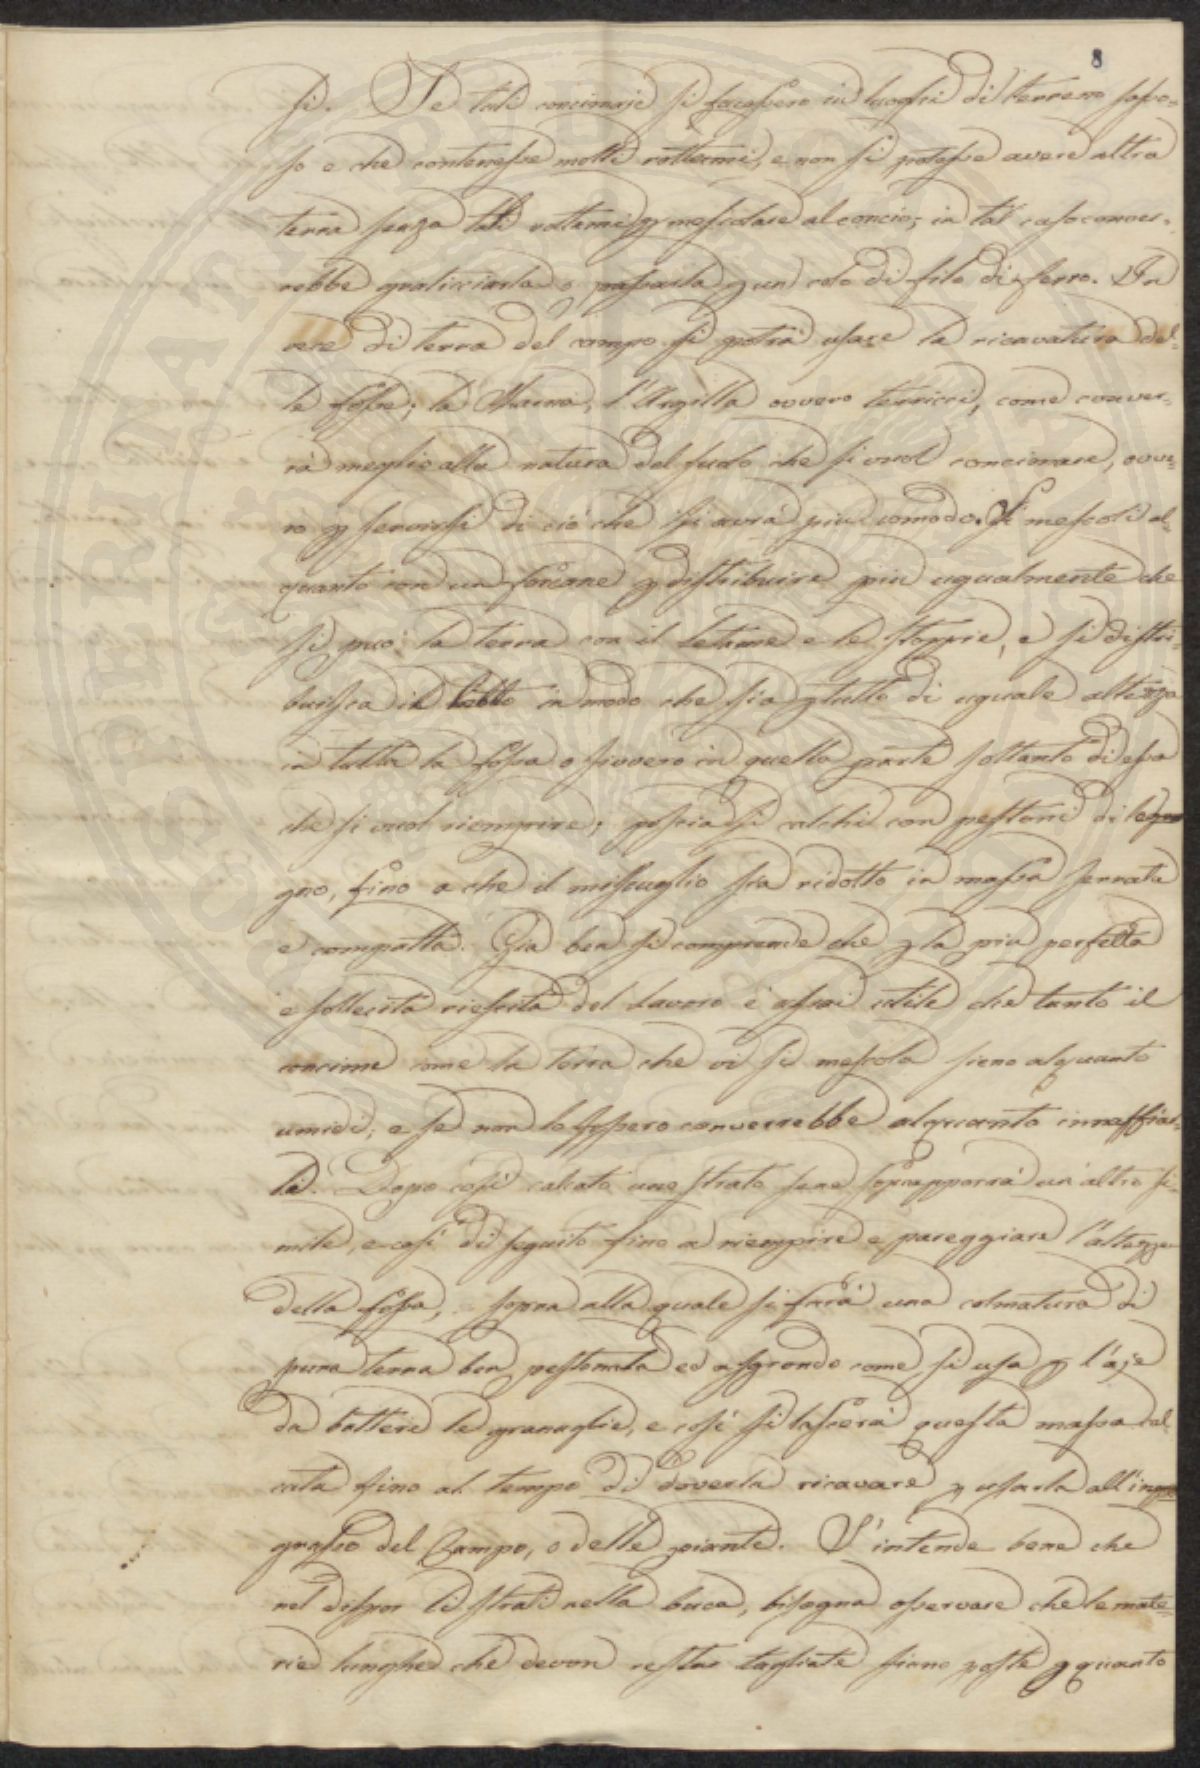 8
si. Se tali concimaje si facessero in luoghi di terreno sasso-
so e che contenesse molti rottami, e non si potesse avere altra
terra senza tali rottami p mescolare al concio; in tal caso conver-
rebbe graticciarla o passarla p un colo di filo di ferro. In
vece di terra del campo si potrà usare la ricavatura del-
le fosse; la Marna, l'Argilla ovvero terricci, come conver-
rà meglio alla natura del suolo che si vuol concimare, ovve-
ro p servirsi di ciò che si avrà piu comodo. Si mescoli al-
quanto con un forcone p distribuire piu ugualmente che
si puo' la terra con il letame e le stoppie, e si distri-
buisca il tutto in modo che sia p tutto di uguale altezza
in tutta la fossa o sivvero in quella parte soltanto di essa
che si vuol riempire; poscia si calchi con pestoni di le
gno, fino a che il miscuglio sia ridotto in massa serrata
e compatta. Gia ben si comprende che p la piu perfetta
e sollecita riescita del lavoro è assai utile che tanto il
concime come la terra che vi si mescola sieno alquanto
umidi; e se non lo fossero converrebbe alquanto innaffiar-
li. Dopo così calcato uno strato sene soprapporrà un altro si-
mile, e così di seguito fino a riempire e pareggiare l'altezza
della fossa, sopra alla quale si farà una colmatura di
pura terra ben pestonata ed a sgrondo come si usa p l'aje
da battere le granaglie, e così si lascerà questa massa cal-
cata fino al tempo di doverla ricavare p usarla all'in
grasso del Campo, o delle piante. S'intende bene che
nel dispor li strati nella buca, bisogna osservare che le mate-
rie lunghe che devon restar tagliate siano poste p quanto